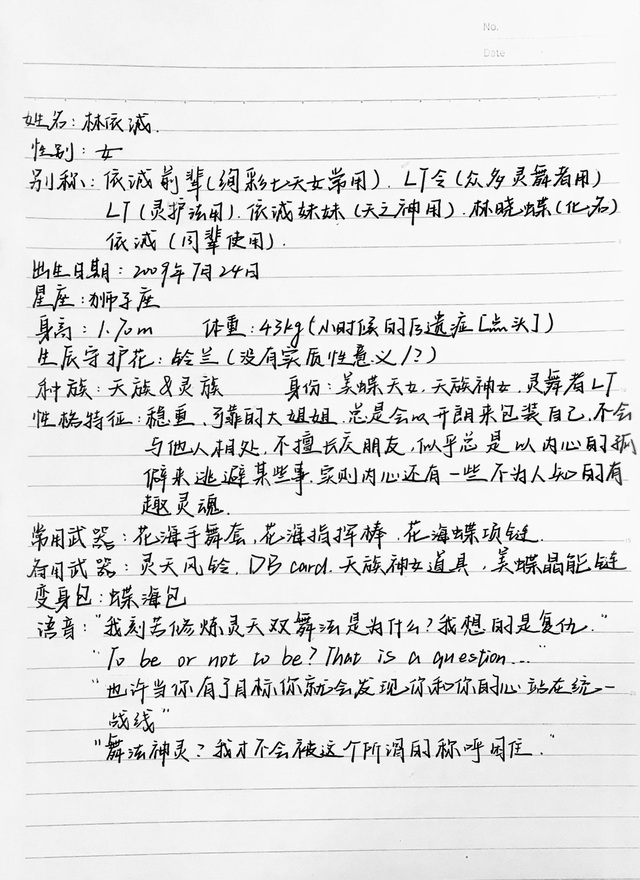 No.
Date
姓名：林依诚.
性别：女
别称：依诚前辈(绚彩七天女常用). LT令(众多灵舞者用)
LT(灵护法用). 依诚妹妹(天之神用). 林晓蝶(化名)
依诚(同辈使用).
出生日期：2009年7月24日
星座：狮子座
身高：1.70m 体重：43kg(小时候的后遗症[点头])
生辰守护花：铃兰(没有实质性意义/?)
种族：天族&灵族 身份：美蝶天女.天族神女.灵舞者LT
性格特征：稳重、可靠的大姐姐.总是会以开朗来包装自己.不会
与他人相处.不擅长交朋友,似乎总是以内心的孤
僻来逃避某些事.实则内心还有一些不为人知的有
趣灵魂.
常用武器：花海手舞套,花海指挥棒.花海蝶项链.
备用武器：灵天风铃.DB card.天族神女道具,美蝶晶能链
变身包：蝶海包
语音："我刻苦修炼灵天双舞法是为什么?我想的是复仇."
"To be or not to be? That is a question..."
"也许当你有了目标你就会发现你和你的心站在统一
战线"
"舞法神灵?我才不会被这个所谓的称呼困住."